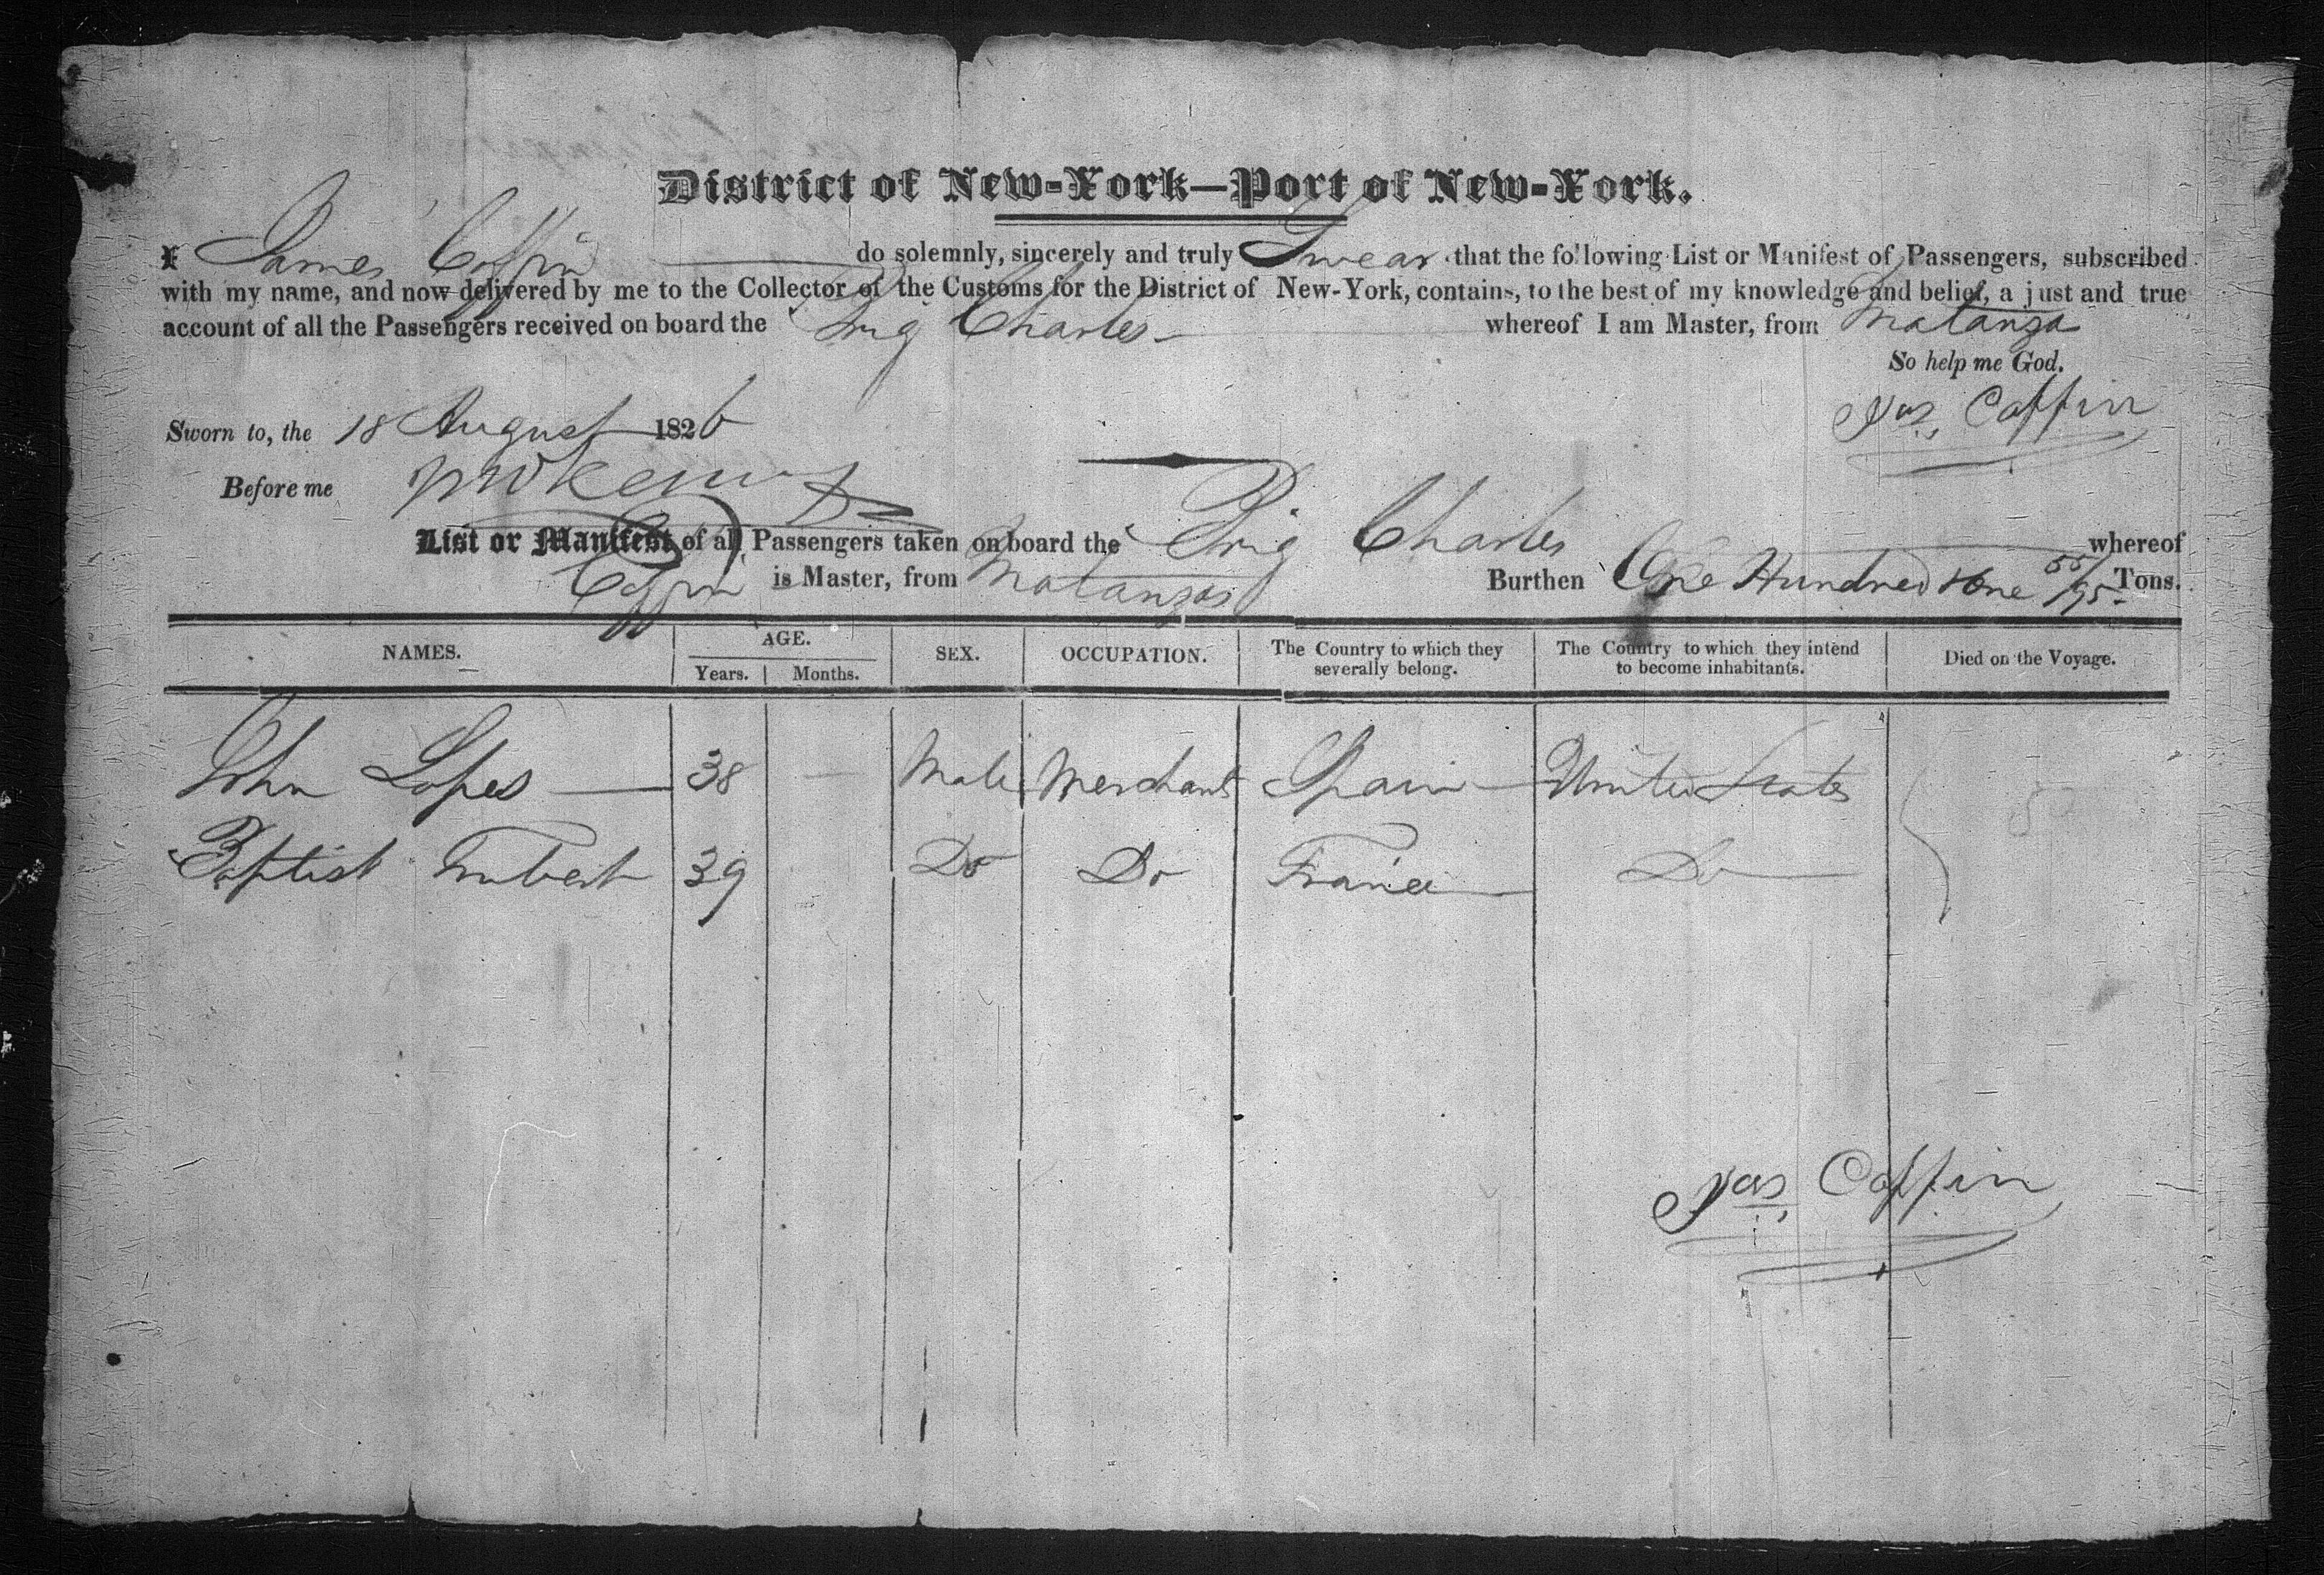 District of New-York—Port of New-York.
I James Coffin do solemnly, sincerely and truly Swear that the following List or Manifest of Passengers, subscribed
with my name, and now delivered by me to the Collector of the Customs for the District of New-York, contains, to the best of my knowledge and belief, a just and true
account of all the Passengers received on board the Brig Charles - whereof I am Master, from Matanza
So help me God.
Jas. Coffin
Sworn to, the 18 August 1826
Before me
List or Manifest of all Passengers taken on board the Brig Charles whereof
Coffin is Master, from Matanzas Burthen One Hundred & One 55/95 Tons.
NAMES. AGE. SEX. OCCUPATION. The Country to which they severally belong. The Country to which they intend to become inhabitants. Died on the Voyage.
Years. Months.
John Lopes 38 — Male Merchant Spain United States
Baptist Trubert 39 Do Do France Do
Jas. Coffin